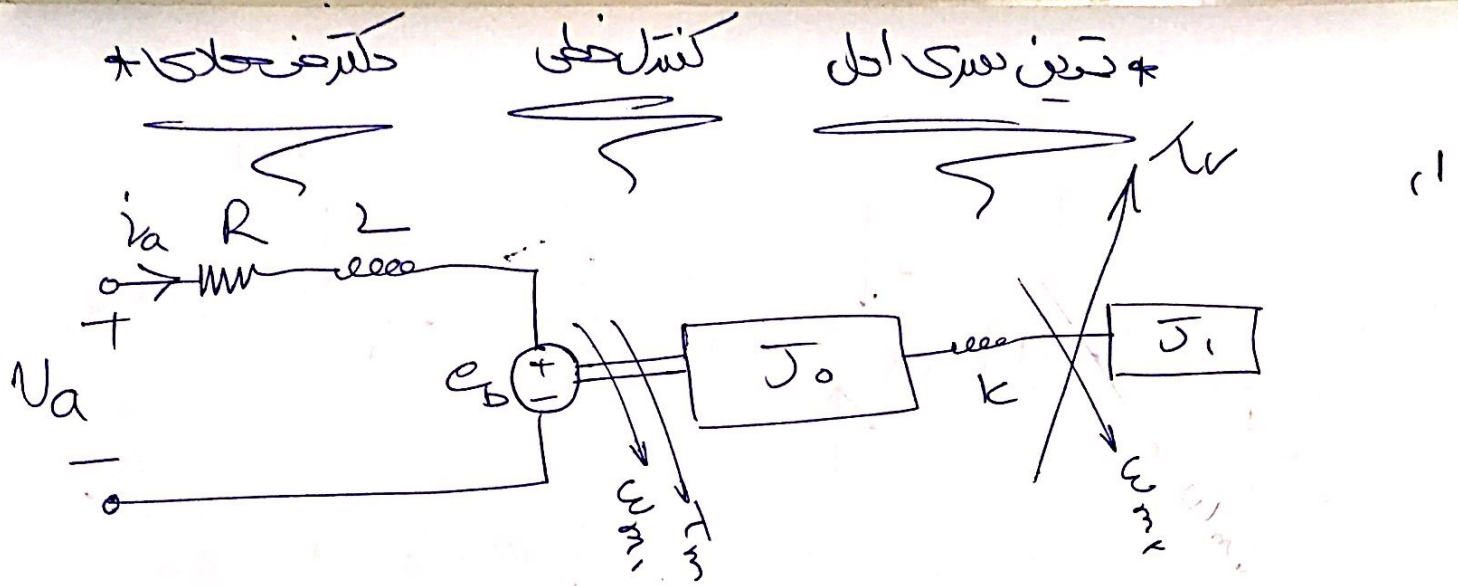 * تمرین سری اول کنترل خطی دکتر *
۱)
i_a R L
+
V_a
−
e_b
+
−
J_0
k
J_1
ω_m1
T_m